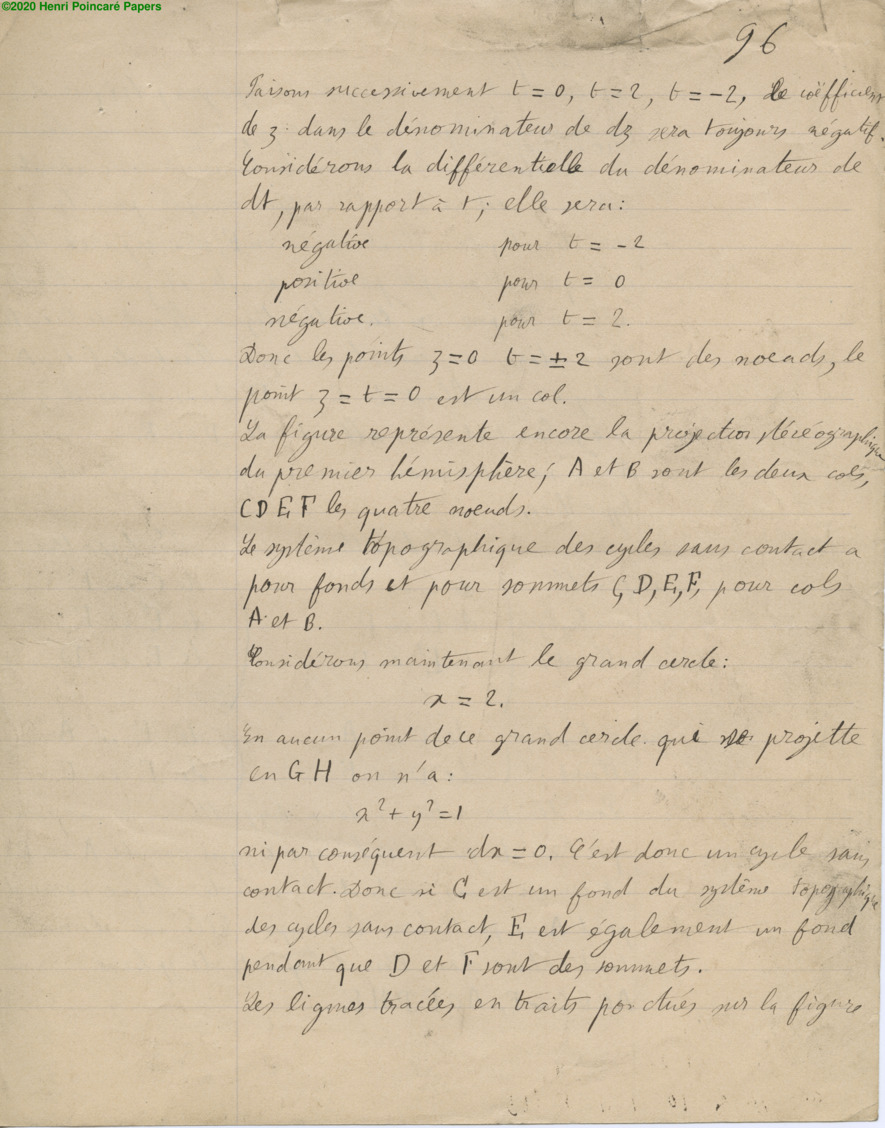 ©2020 Henri Poincaré Papers
96
Faisons successivement t = 0, t = 2, t = -2, le coëfficient
de z dans le dénominateur de dz sera toujours négatif.
Considérons la différentielle du dénominateur de
dt, par rapport à t; elle sera:
négative pour t = -2
positive pour t = 0
négative. pour t = 2.
Donc les points z = 0 t = ± 2 sont des noeuds, le
point z = t = 0 est un col.
La figure représente encore la projection stéréographique
du premier hémisphère; A et B sont les deux cols,
C D E F les quatre noeuds.
Le système topographique des cycles sans contact a
pour fonds et pour sommets C, D, E, F, pour cols
A et B.
Considérons maintenant le grand cercle:
x = 2.
En aucun point de ce grand cercle qui se projette
en G H on n'a:
x² + y² = 1
ni par conséquent dx = 0. C'est donc un cycle sans
contact. Donc si C est un fond du système topographique
des cycles sans contact, E est également un fond
pendant que D et F sont des sommets.
Les lignes tracées en traits ponctués sur la figure